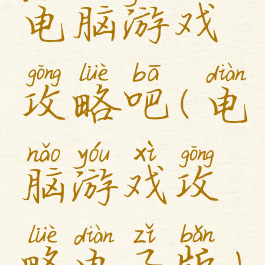 电脑游戏
gōng lüè bā diàn
攻略吧(电
nǎo yóu xì gōng
脑游戏攻
lüè diàn zǐ bǎn
略电子版)